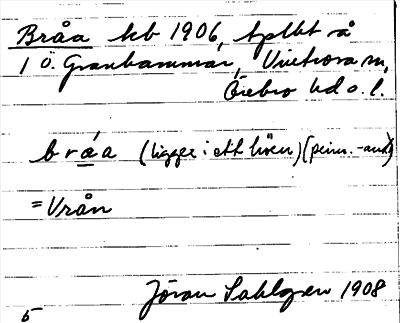 Bråa kb 1906, tplkt å
1 Ö. Granhammar, Vintrosa sn,
Örebro hd o. l.
bræ´a (ligger i ett hörn) (peirs.-ant)
= Vrån
Jöran Sahlgren 1908
5